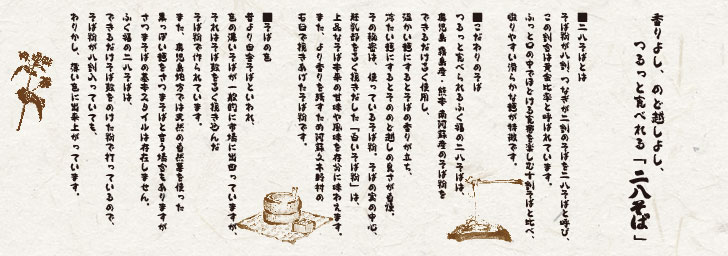 香りよし、のど越しよし、
つるっと食べれる「二八そば」
■二八そばとは
そば粉が八割、つなぎが二割のそばを二八そばと呼び、
この割合は黄金比率と呼ばれています。
ふっと口の中でほどける食感を楽しむ十割そばと比べ、
啜りやすい滑らかな麺が特徴です。
■こだわりのそば
つるっと食べられるふく福の二八そばは、
鹿児島 霧島産・熊本 南阿蘇産のそば粉を
できるだけ多く使用し、
温かい麺にするとそばの香りが立ち、
冷たい麺にするとそののど越しの良さが自慢。
その秘密は、使っているそば粉。そばの実の中心、
胚乳部を多く挽きだした「白いそば粉」は、
上品なそば本来の甘味や風味を存分に味わえます。
また、より香りを残すため阿蘇久木野村の
石臼で挽きあげたそば粉です。
■そばの色
昔より田舎そばといわれ、
色の濃いそばが一般的に市場に出回っていますが、
それはそば殻を多く挽き込んだ
そば粉で作られています。
また、鹿児島地方では天然の自然薯を使った
黒っぽい麺をさつまそばと言う場合もありますが
さつまそばの基本スタイルは存在しません。
ふく福の二八そばは、
できるだけそば殻をのけた粉で打っているので、
そば粉が八割入っていても、
わりかし、薄い色に出来上がっています。